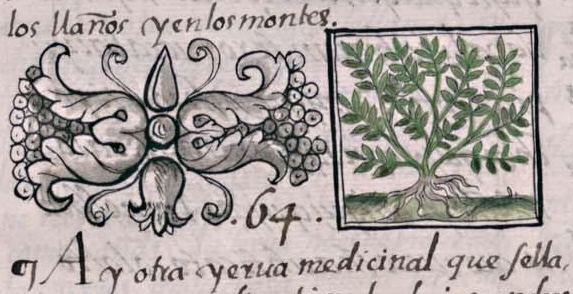 los llaños y en los montes.
.64.
¶ Ay otra yerua medicinal que sella,